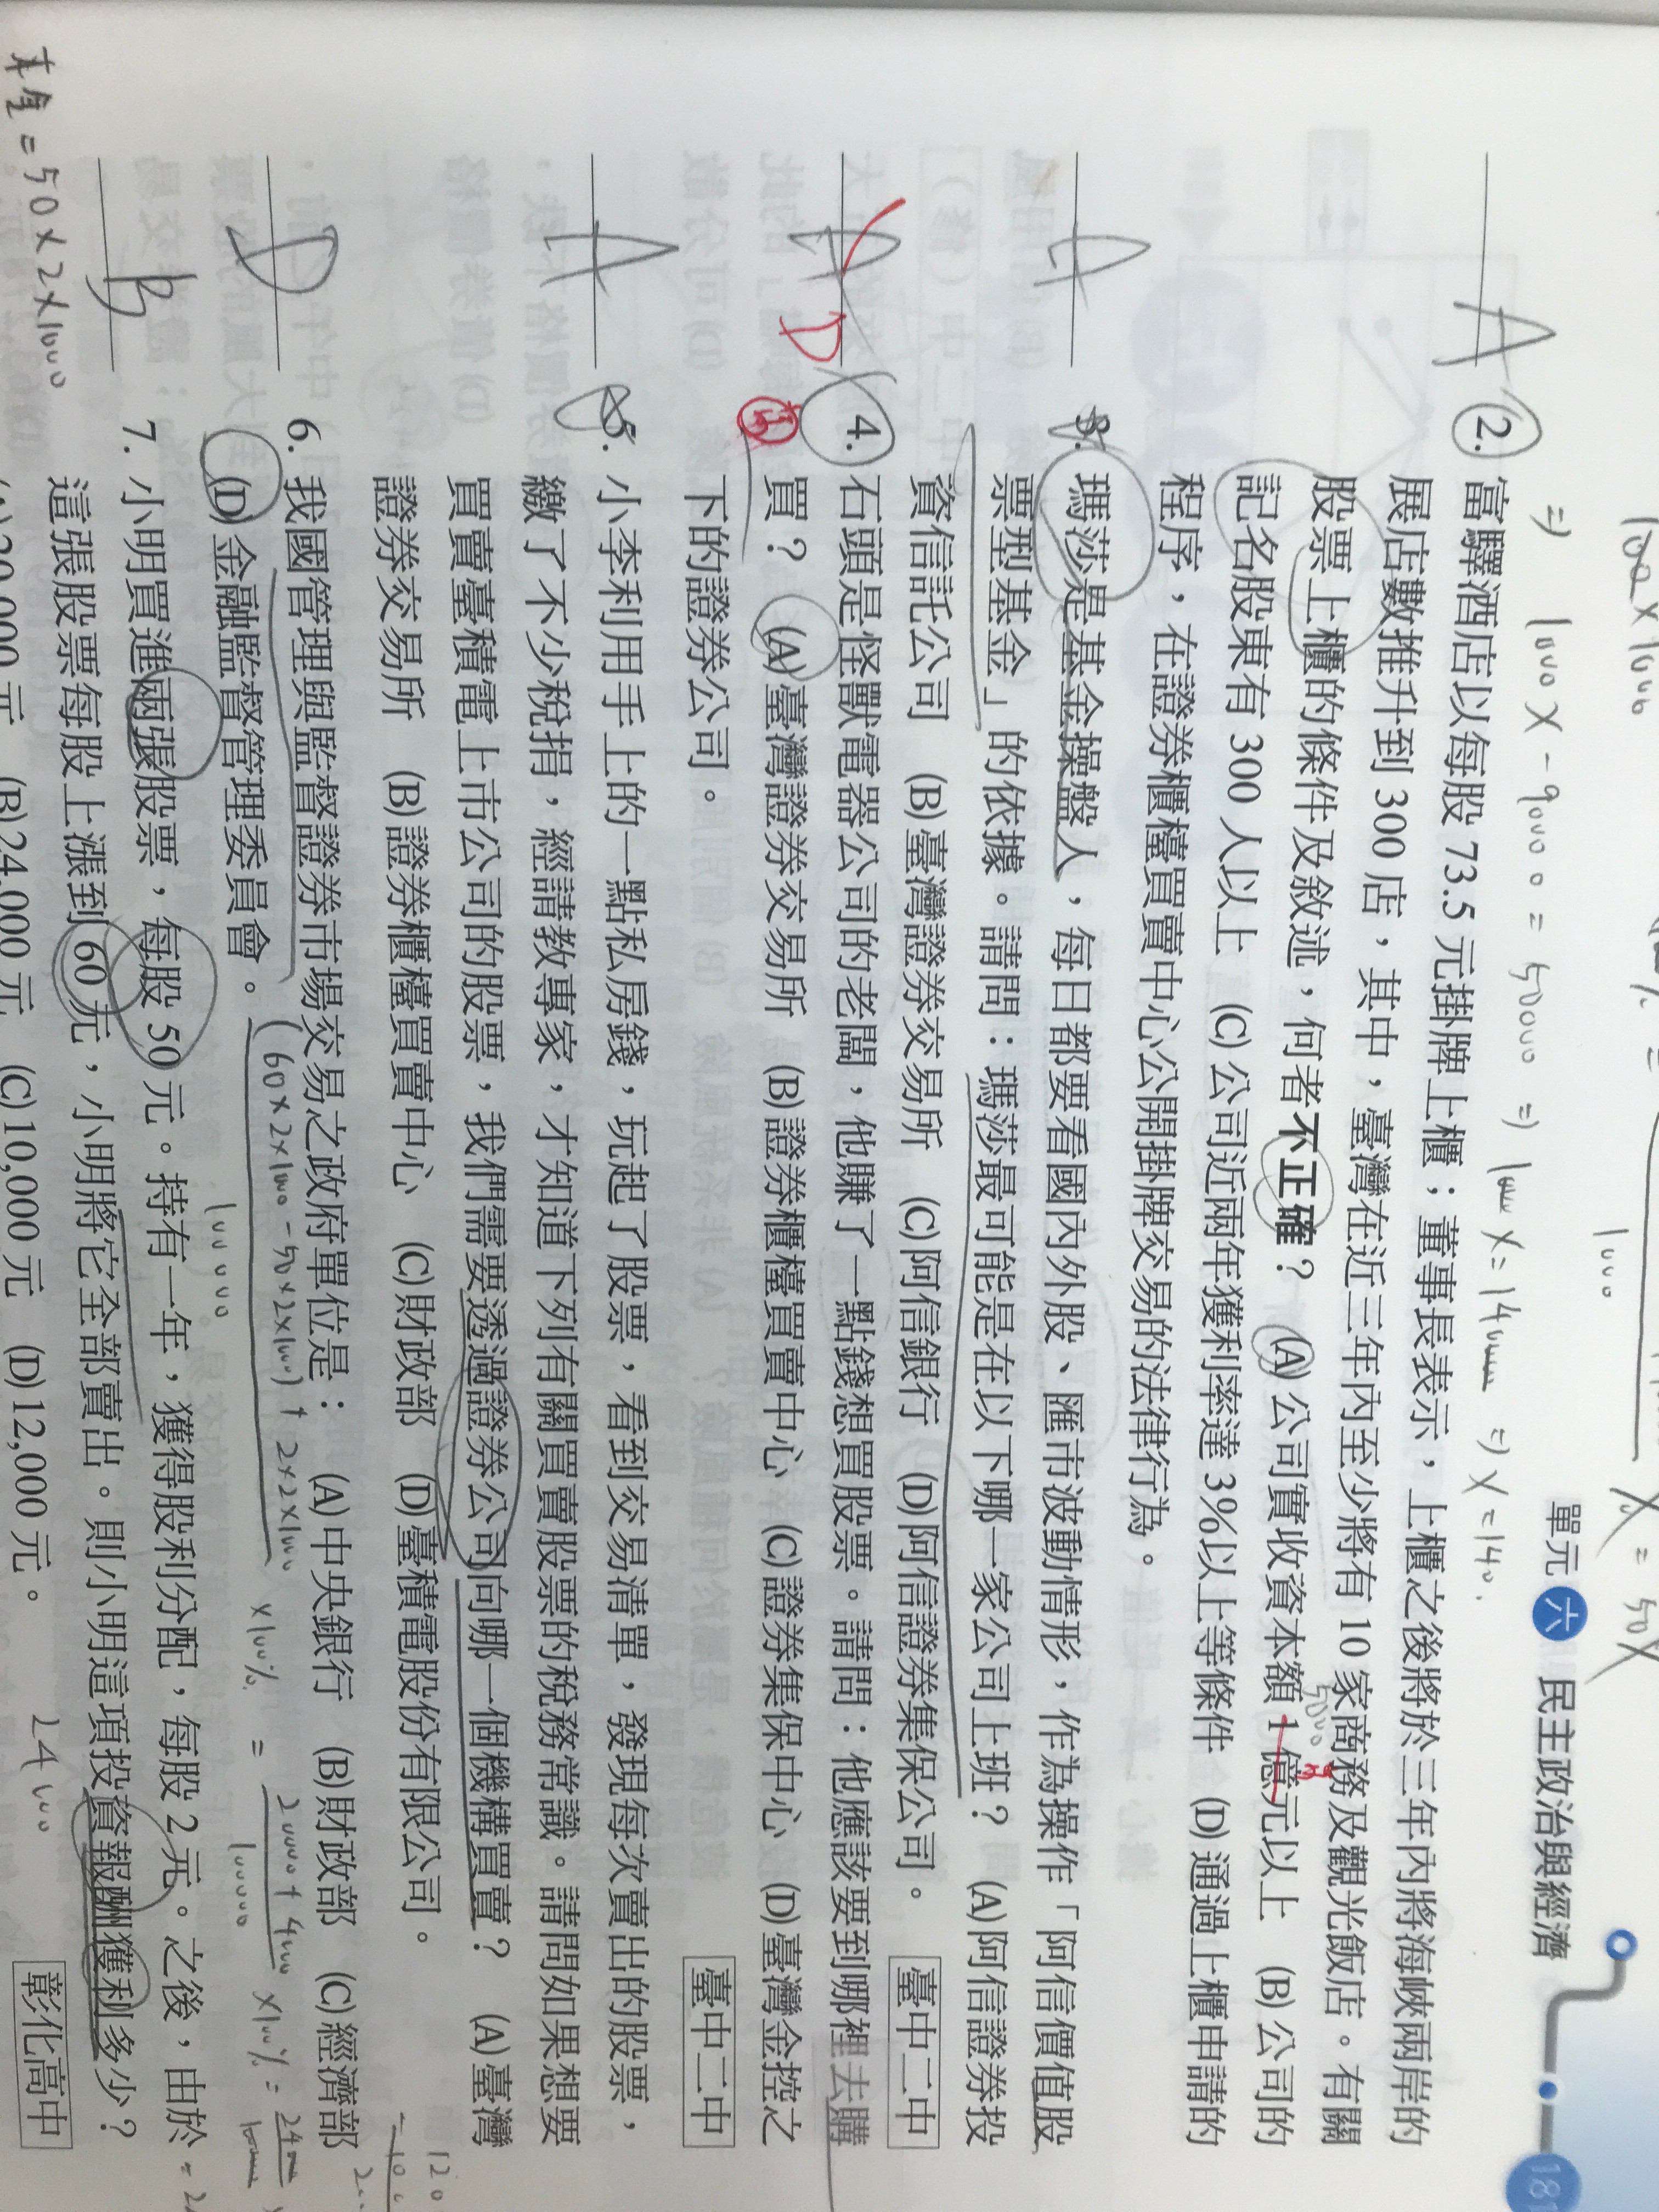 單元 六 民主政治與經濟
181
100×1000
1000
X = 50X
=) 1000X - 90000 = 50000 =) 1000X = 140000 =) X = 140.
A ②. 富驛酒店以每股 73.5 元掛牌上櫃；董事長表示，上櫃之後將於三年內將海峽兩岸的
展店數推升到 300 店，其中，臺灣在近三年內至少將有 10 家商務及觀光飯店。有關
股票上櫃的條件及敘述，何者不正確？ (A) 公司實收資本額 1 億元以上 (B) 公司的
5000 萬
記名股東有 300 人以上 (C) 公司近兩年獲利率達 3%以上等條件 (D) 通過上櫃申請的
程序，在證券櫃檯買賣中心公開掛牌交易的法律行為。
A 3. 瑪莎是基金操盤人，每日都要看國內外股、匯市波動情形，作為操作「阿信價值股
票型基金」的依據。請問：瑪莎最可能是在以下哪一家公司上班？ (A)阿信證券投
資信託公司 (B)臺灣證券交易所 (C)阿信銀行 (D)阿信證券集保公司。 臺中二中
A D 4. 石頭是怪獸電器公司的老闆，他賺了一點錢想買股票。請問：他應該要到哪裡去購
買？ (A)臺灣證券交易所 (B)證券櫃檯買賣中心 (C)證券集保中心 (D)臺灣金控之
下的證券公司。 臺中二中
A 5. 小李利用手上的一點私房錢，玩起了股票，看到交易清單，發現每次賣出的股票，
繳了不少稅捐，經請教專家，才知道下列有關買賣股票的稅務常識。請問如果想要
買賣臺積電上市公司的股票，我們需要透過證券公司向哪一個機構買賣？ (A)臺灣
證券交易所 (B)證券櫃檯買賣中心 (C)財政部 (D)臺積電股份有限公司。
D 6. 我國管理與監督證券市場交易之政府單位是： (A)中央銀行 (B)財政部 (C)經濟部
(D)金融監督管理委員會。
(60×2×1000 - 50×2×1000) + 2×2×1000
100000
×100% = 20000 + 4000
100000
×100% = 24000
B 7. 小明買進兩張股票，每股 50 元。持有一年，獲得股利分配，每股 2 元。之後，由於
這張股票每股上漲到 60 元，小明將它全部賣出。則小明這項投資報酬獲利多少？
(A)20,000 元 (B)24,000 元 (C)10,000 元 (D)12,000 元。 彰化高中
24000
= 50×2×1000